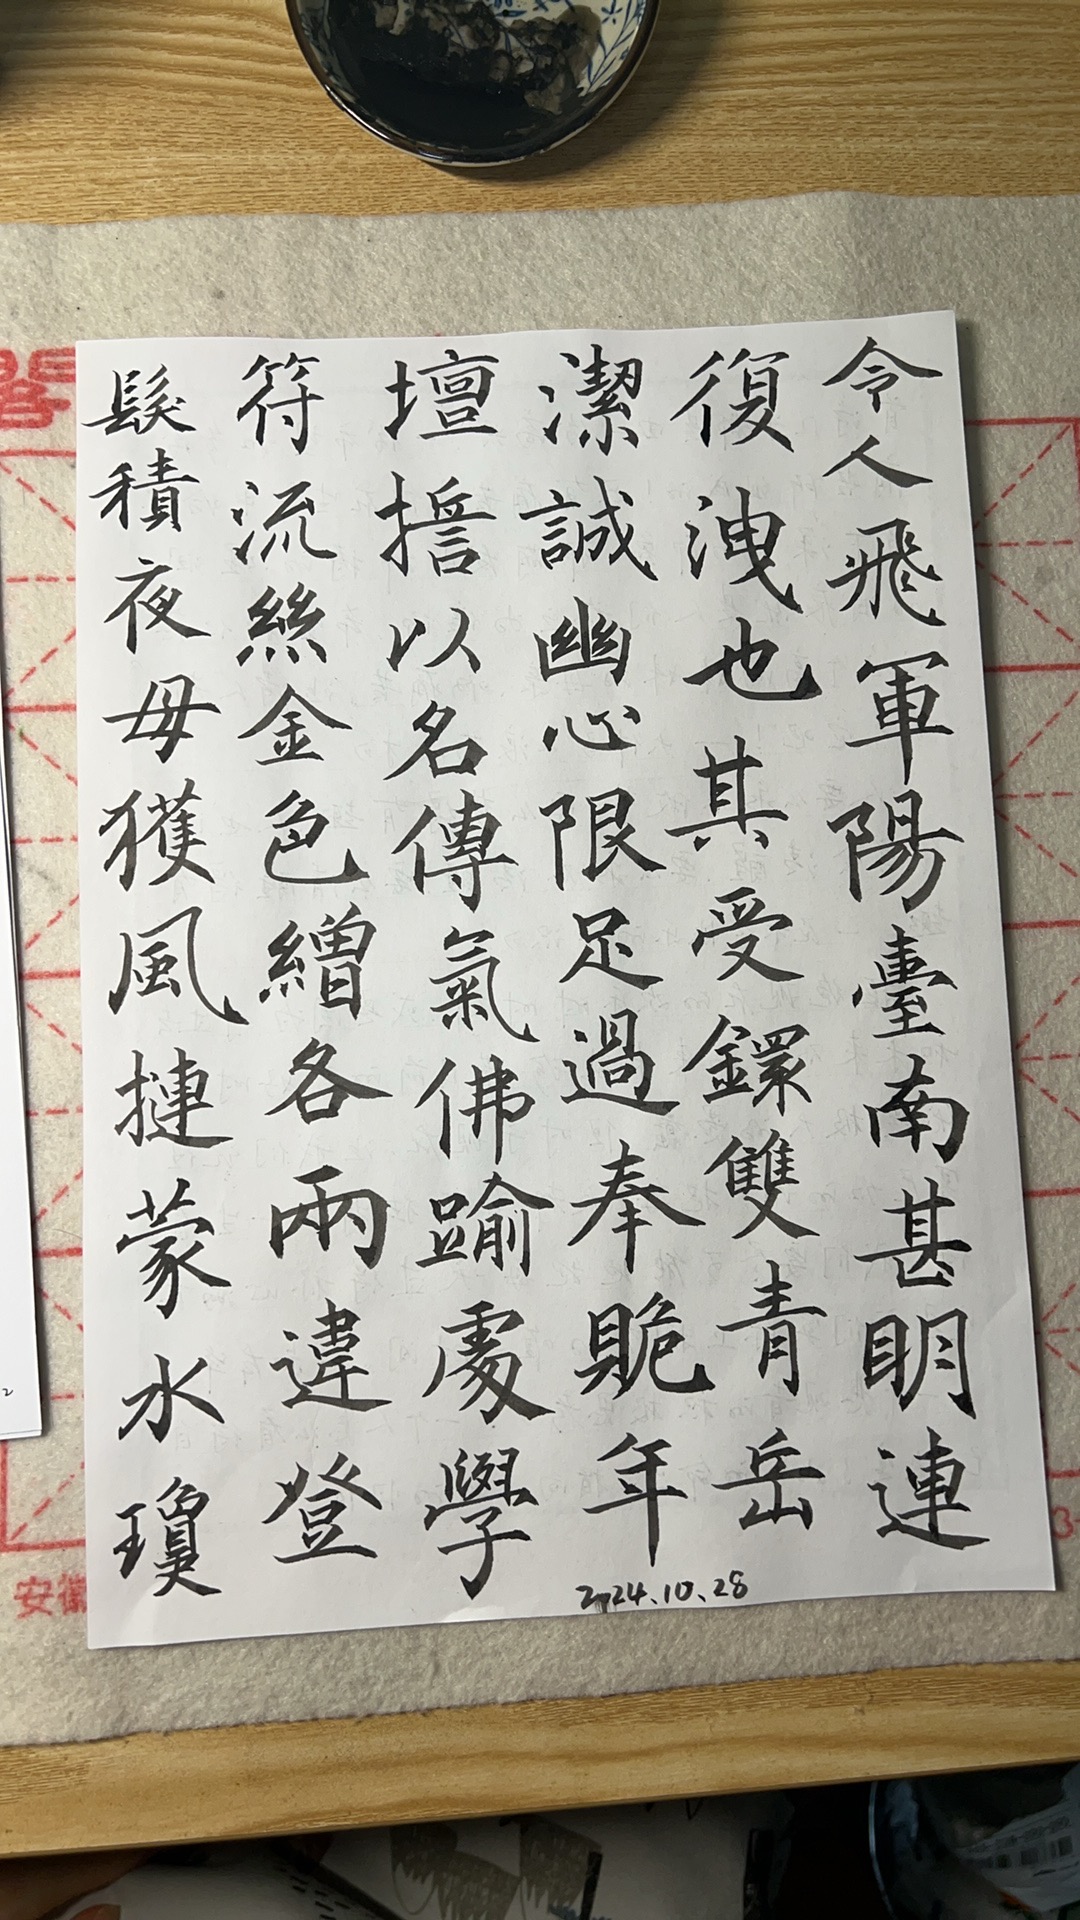 令人飛軍陽臺南甚明連
復洩也其受鏍雙青岳
潔誠幽心限足過奉跪年
壇𢶍以名傳氣佛踰處學
符流絲金色繒各兩違登
髮積夜毋獲風摙蒙水瓊
2024.10.28